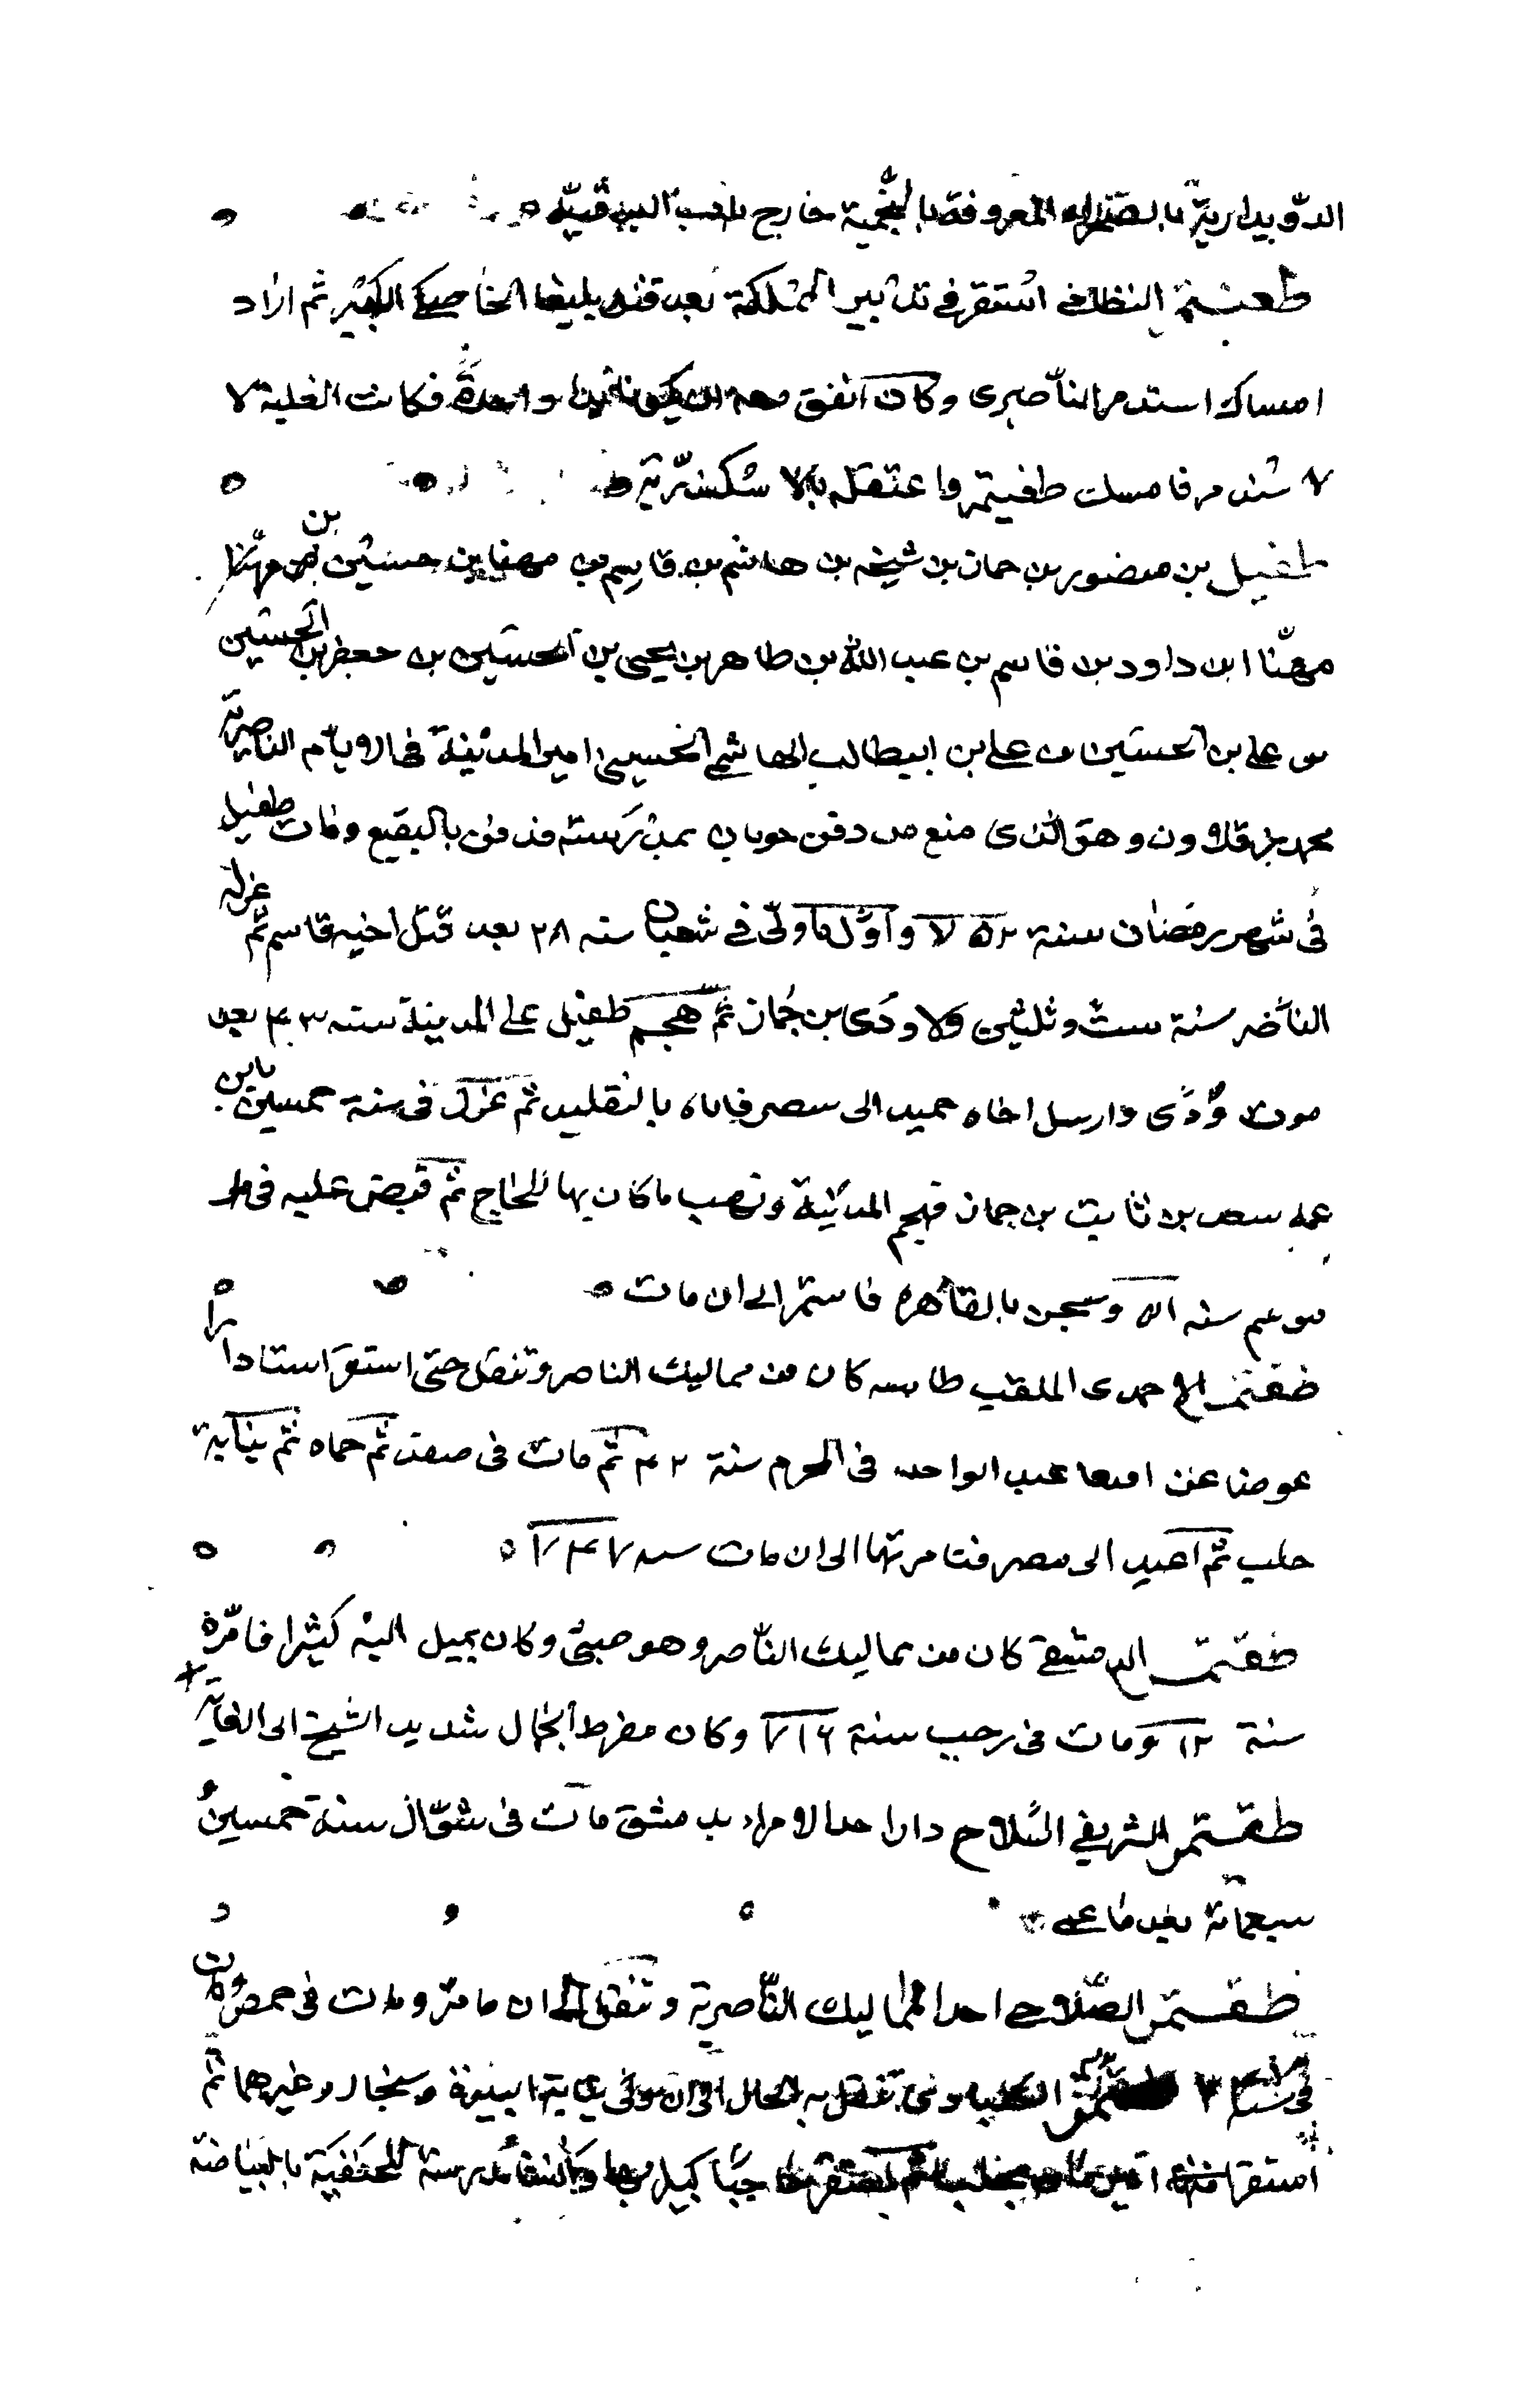 الدويدارية بالصحراء المعروفة بالنجمية خارج باب البرقية
طغيتمر النظامي استقر في تدبير المملكة بعد قتل يلبغا الخاصكي الكبير ثم اراد
امساك استدمر الناصري وكان اتفق معه ان يكونا واحدة فكانت الغلبة لا
لا سندمر فامسك طغيتمر واعتقله بالاسكندرية
طفيل بن منصور بن جماز بن شيحه بن هاشم بن قاسم بن مهنا بن حسين بن مهنا
مهنا ابن داود بن قاسم بن عبد الله بن طاهر بن يحيى بن الحسين بن جعفر بن الحسين
بن علي بن الحسين بن علي بن ابيطالب الهاشمي الحسيني امير المدينة في الايام الناصرية
محمد بن قلاوون وهو الذى منع من دفن جوبان بمدرسته فدفن بالبقيع ومات طفيل
في شهر رمضان سنة ٧٥٢ واول ما ولى في شعبان سنه ٢٨ بعد قتل اخيه قاسم ثم عزله
الناصر سنة ست وثلثين ولا ودى بن جماز ثم هجم طفيل على المدينة سنه ٤٣ بعد
موت ودى وارسل اخاه حميد الى مصر فاتاه بالتقليد ثم عزل فى سنة خمسين بابن
عمه سعد بن ثابت بن جماز فهجم المدينة ونهب ما كان بها للحاج ثم قبض عليه فى
موسم سنه ٥١ وسجن بالقاهره فاستمر الى ان مات
طقتمر الاحمدى الملقب طاسه كان من مماليك الناصر وتنقل حتى استقر استادارا
عوضا عن اقبغا عبد الواحد فى المحرم سنة ٤٢ ثم مات فى صفد ثم حماه ثم بنيابة
حلب ثم اعيد الى مصر فتامر بها الى ان مات سنه ٧٤٧
طقتمر الدمشقي كان من مماليك الناصر وهو صبى وكان يميل اليه كثيرا فامره
سنة ١٢ ومات فى رجب سنة ٧١٦ وكان مفرط الجمال شديد الشح الى الغاية
طقتمر الشريفي السلاح دار احد الامراء بدمشق مات فى شوال سنة خمسين و
سبعمائة بعد ما عمى
طقتمر الصلاحي احد المماليك الناصرية وتنقل الى ان تامر ومات فى حمص
في سنة تنقل به الحال الى ان ولى نيابة البيرة وسنجار وغيرهما ثم
استقر بحلب ثم استقر حاجبا كبيرا بها وانشا مدرسة للحنفية بالبياضة